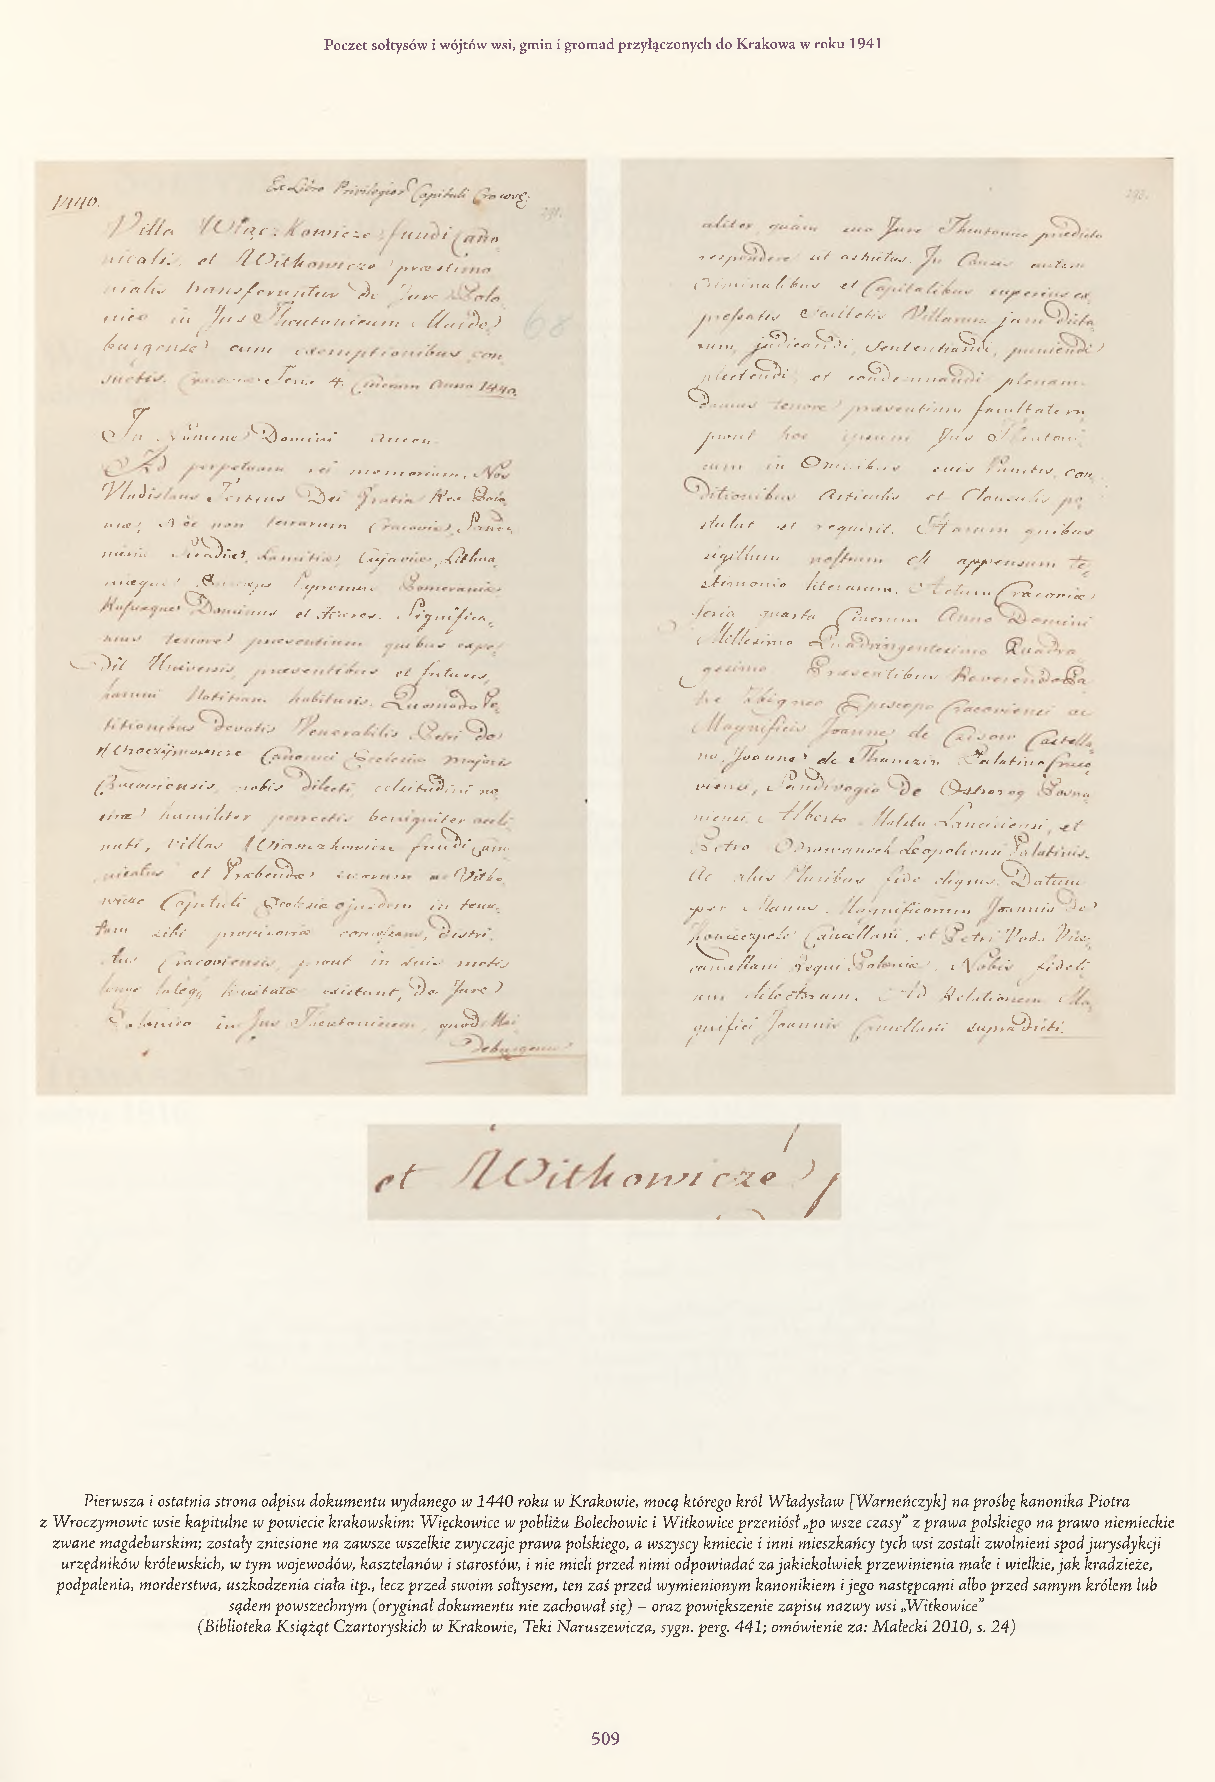 Poczet sołtysów i wójtów wsi, gmin i gromad przyłączonych do Krakowa w roku 1941
1440.
Ex Libro Privilegior Capituli Cracov:
291.
Villa Wiączkowicze fundi Cano
nicalis et Witkowicze præstimo
nialis transferuntur de Jure Polo
nico in Jus Theutonicum Maide
burgense cum exemptionibus con
suetis. Cracoviæ Feria 4. Cinerum Anno 1440.
68
In Nomine Domini Amen
Ad perpetuam rei memoriam. Nos
Vladislaus Tertius Dei Gratia Rex Polo
niæ, Nec non terrarum Cracoviæ, Sando
miriæ Siradiæ, Lancitiæ, Cujaviæ, Lithua
niæque Princeps Supremus Pomeraniæ
Russiæque Dominus et Hæres. Significa
mus tenore præsentium quibus expe
dit Universis, præsentibus et futuris,
harum Notitiam habituris. Quomodo Pe
titionibus devotis Venerabilis Petri de
Wroczymowicze Canonici Ecclesiæ majoris
Cracoviensis, nobis dilecti, celsitudini no
stræ humiliter porrectis benigniter incli
nati, villas Wianczkowicze fundi Cano
nicatus et Præbendæ suarum ac Vitko
wicze Capituli Ecclesiæ ejusdem in tenu
tam sibi provisoriæ comissam, Distri
ctus Cracoviensis, prout in suis metis
longe lateq; limitatæ existunt, De Jure
Polonico in Jus Theutonicum, quod Mai
deburgense
293.
aliter quam suo Jure Theutonico prædicto
respondere ut astrictus. In Causis autem
Criminalibus et Capitalibus superius ex
pressatis Scultetis Villarum jam dicta
rum, judicandi, Sententiandi, puniendi
plectendi et condemnandi plenam
Damus tenore præsentium facultatem,
prout hoc ipsum Jus Theutoni
cum in Omnibus suis Punctis, Con
ditionibus Articulis et Clausulis po
stulat et requirit. Harum quibus
sigillum nostrum est appensum te
stimonio literarum. Actum Cracoviæ
feria quarta Cinerum Anno Domini
Millesimo Quadringentesimo Quadra
gesimo Præsentibus Reverendo Pa
tre Zbigneo Episcopo Cracoviensi ac
Magnificis Joanne de Czisow Castella
no, Joanne de Tharnzin Palatino Craco
viensi, Sandivogio De Ostrorog Posna
niensi, Alberto Malski Lanciciensi, et
Petro Odrowansch Leopoliensi Palatinis.
Ac aliis Pluribus fide dignis. Datum
per Manus Magnificorum Joannis de
Konieczpole Cancellarii, et Petri Voda Vice
cancellarii Regni Poloniæ. Nobis fideli
um dilectorum. Ad Relationem Ma
gnifici Joannis Cancellarii supradicti.
et Witkowicze
Pierwsza i ostatnia strona odpisu dokumentu wydanego w 1440 roku w Krakowie, mocą którego król Władysław [Warneńczyk] na prośbę kanonika Piotra
z Wroczymowic wsie kapitulne w powiecie krakowskim: Więckowice w pobliżu Bolechowic i Witkowice przeniósł „po wsze czasy” z prawa polskiego na prawo niemieckie
zwane magdeburskim; zostały zniesione na zawsze wszelkie zwyczaje prawa polskiego, a wszyscy kmiecie i inni mieszkańcy tych wsi zostali zwolnieni spod jurysdykcji
urzędników królewskich, w tym wojewodów, kasztelanów i starostów, i nie mieli przed nimi odpowiadać za jakiekolwiek przewinienia małe i wielkie, jak kradzieże,
podpalenia, morderstwa, uszkodzenia ciała itp., lecz przed swoim sołtysem, ten zaś przed wymienionym kanonikiem i jego następcami albo przed samym królem lub
sądem powszechnym (oryginał dokumentu nie zachował się) – oraz powiększenie zapisu nazwy wsi „Witkowice”
(Biblioteka Książąt Czartoryskich w Krakowie, Teki Naruszewicza, sygn. perg. 441; omówienie za: Małecki 2010, s. 24)
509